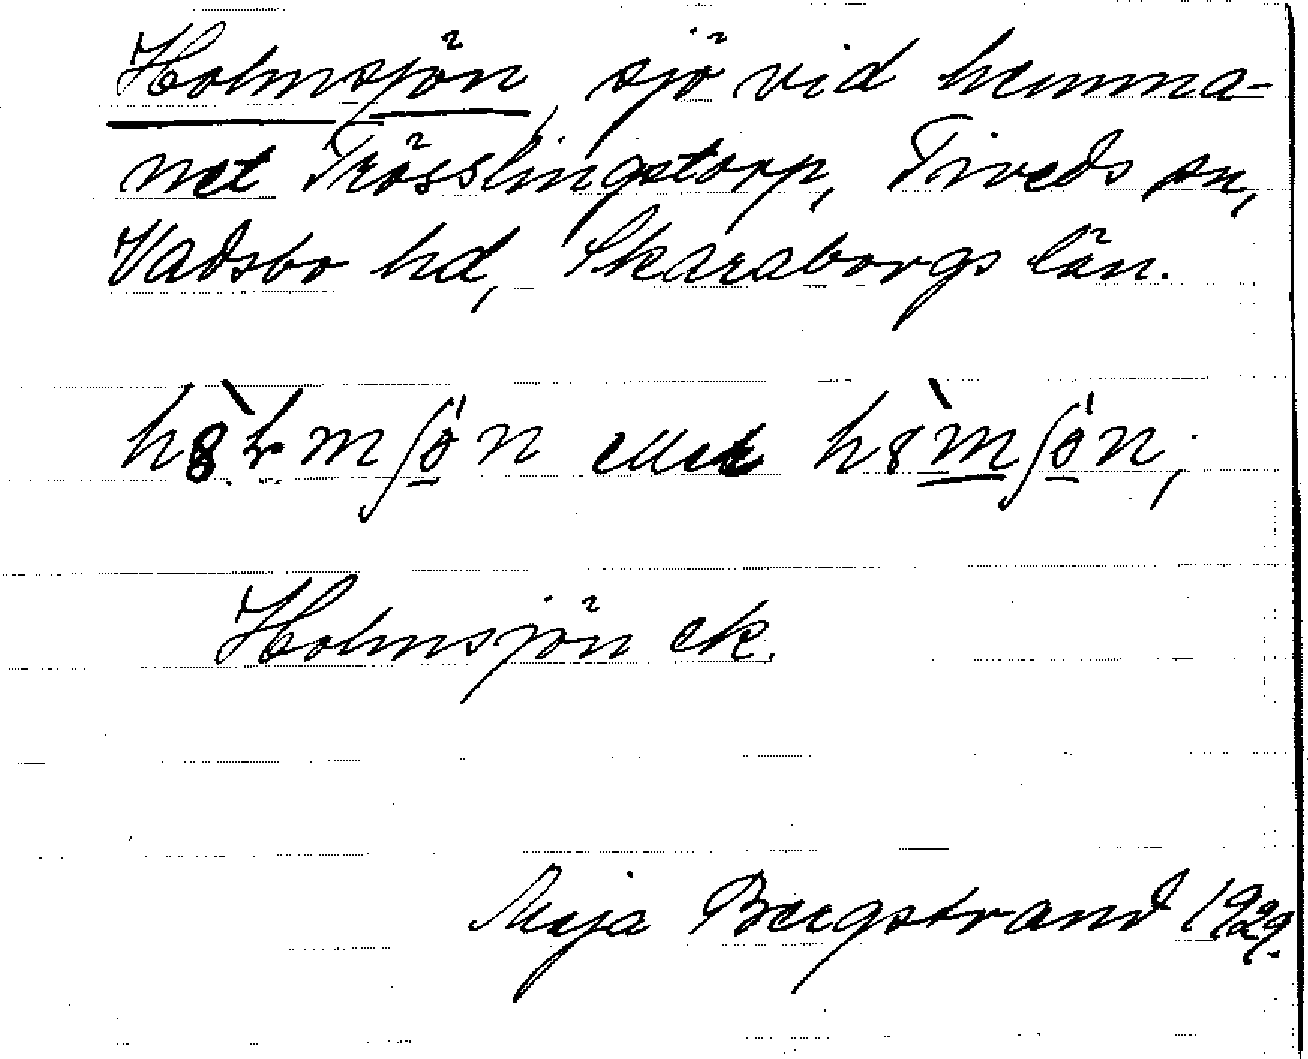 Holmsjön, sjö vid hemma-
net Trösslingstorp, Tiveds sn,
Vadsbo hd, Skaraborgs län.
eller
Holmsjön ek.
Maja Bergstrand 1929.